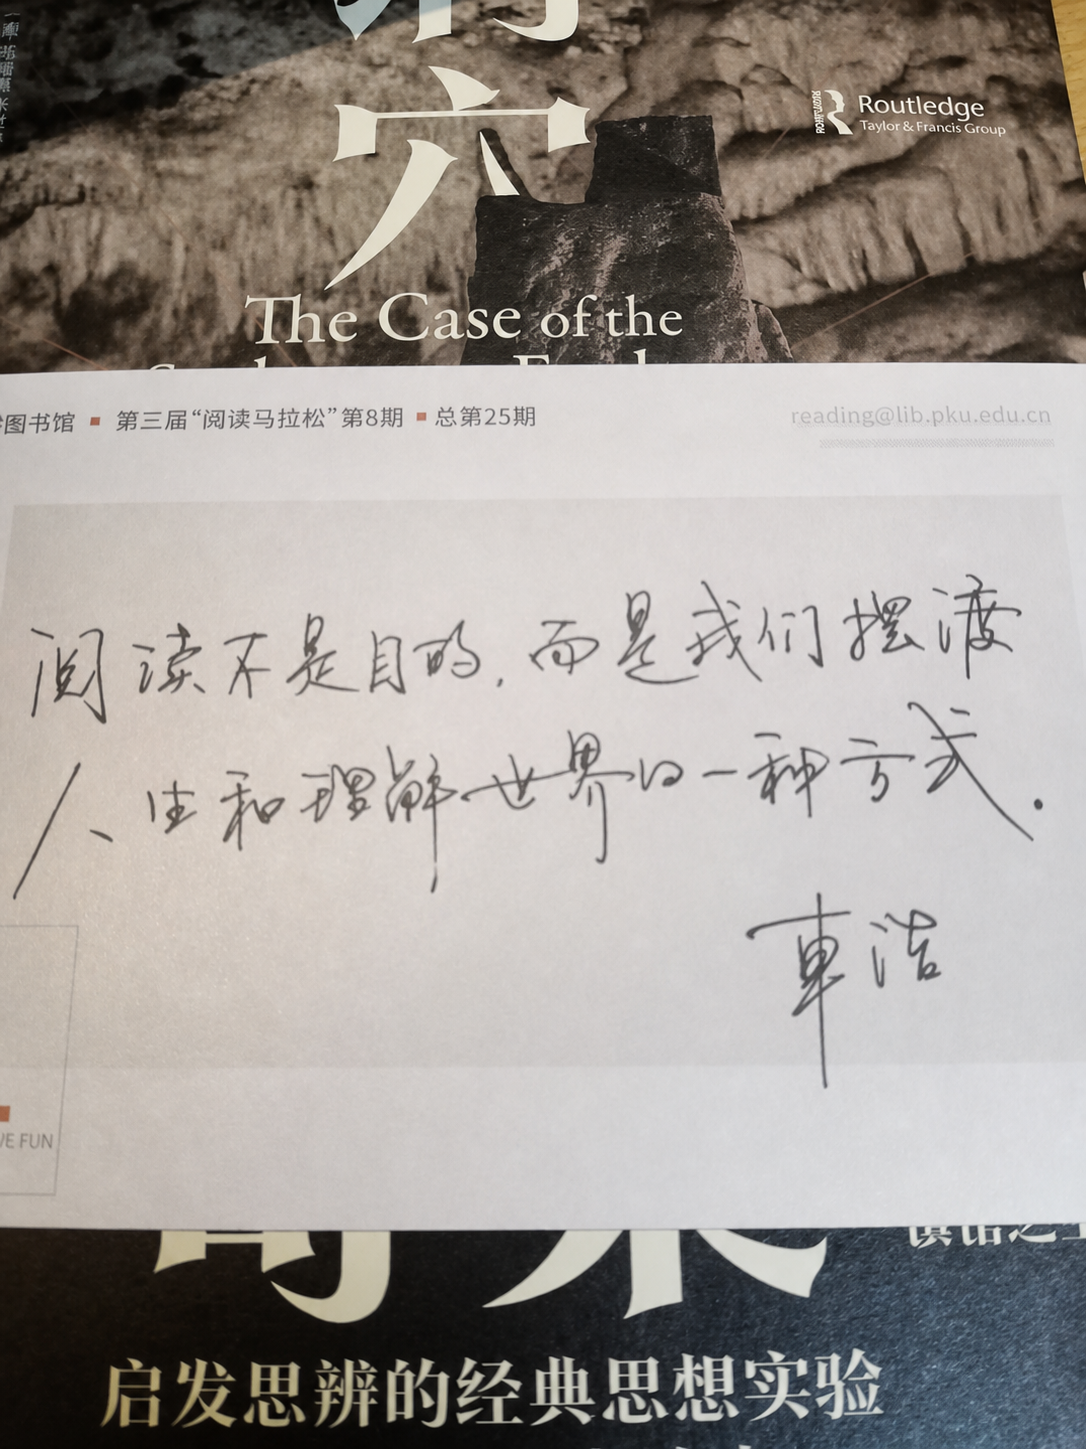 穴
Routledge
Taylor & Francis Group
The Case of the
图书馆 ▪ 第三届“阅读马拉松”第8期 ▪ 总第25期
reading@lib.pku.edu.cn
阅读不是目的,而是我们摆渡
人生和理解世界的一种方式.
車浩
VE FUN
启发思辨的经典思想实验